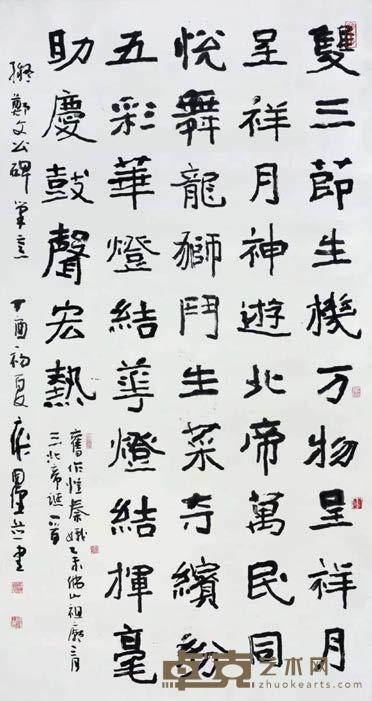 雙三節生機万物呈祥月
呈祥月神遊北帝萬民同
悅舞龍獅鬥生菜奇繽紛
五彩華燈結華燈結揮毫
助慶鼓聲宏熱
舊作憶秦娥乙未佛山祖廟三月
三北帝誕一首
擬鄭文公碑筆意 丁酉初夏 並書
卓克艺术网
zhuokearts.com